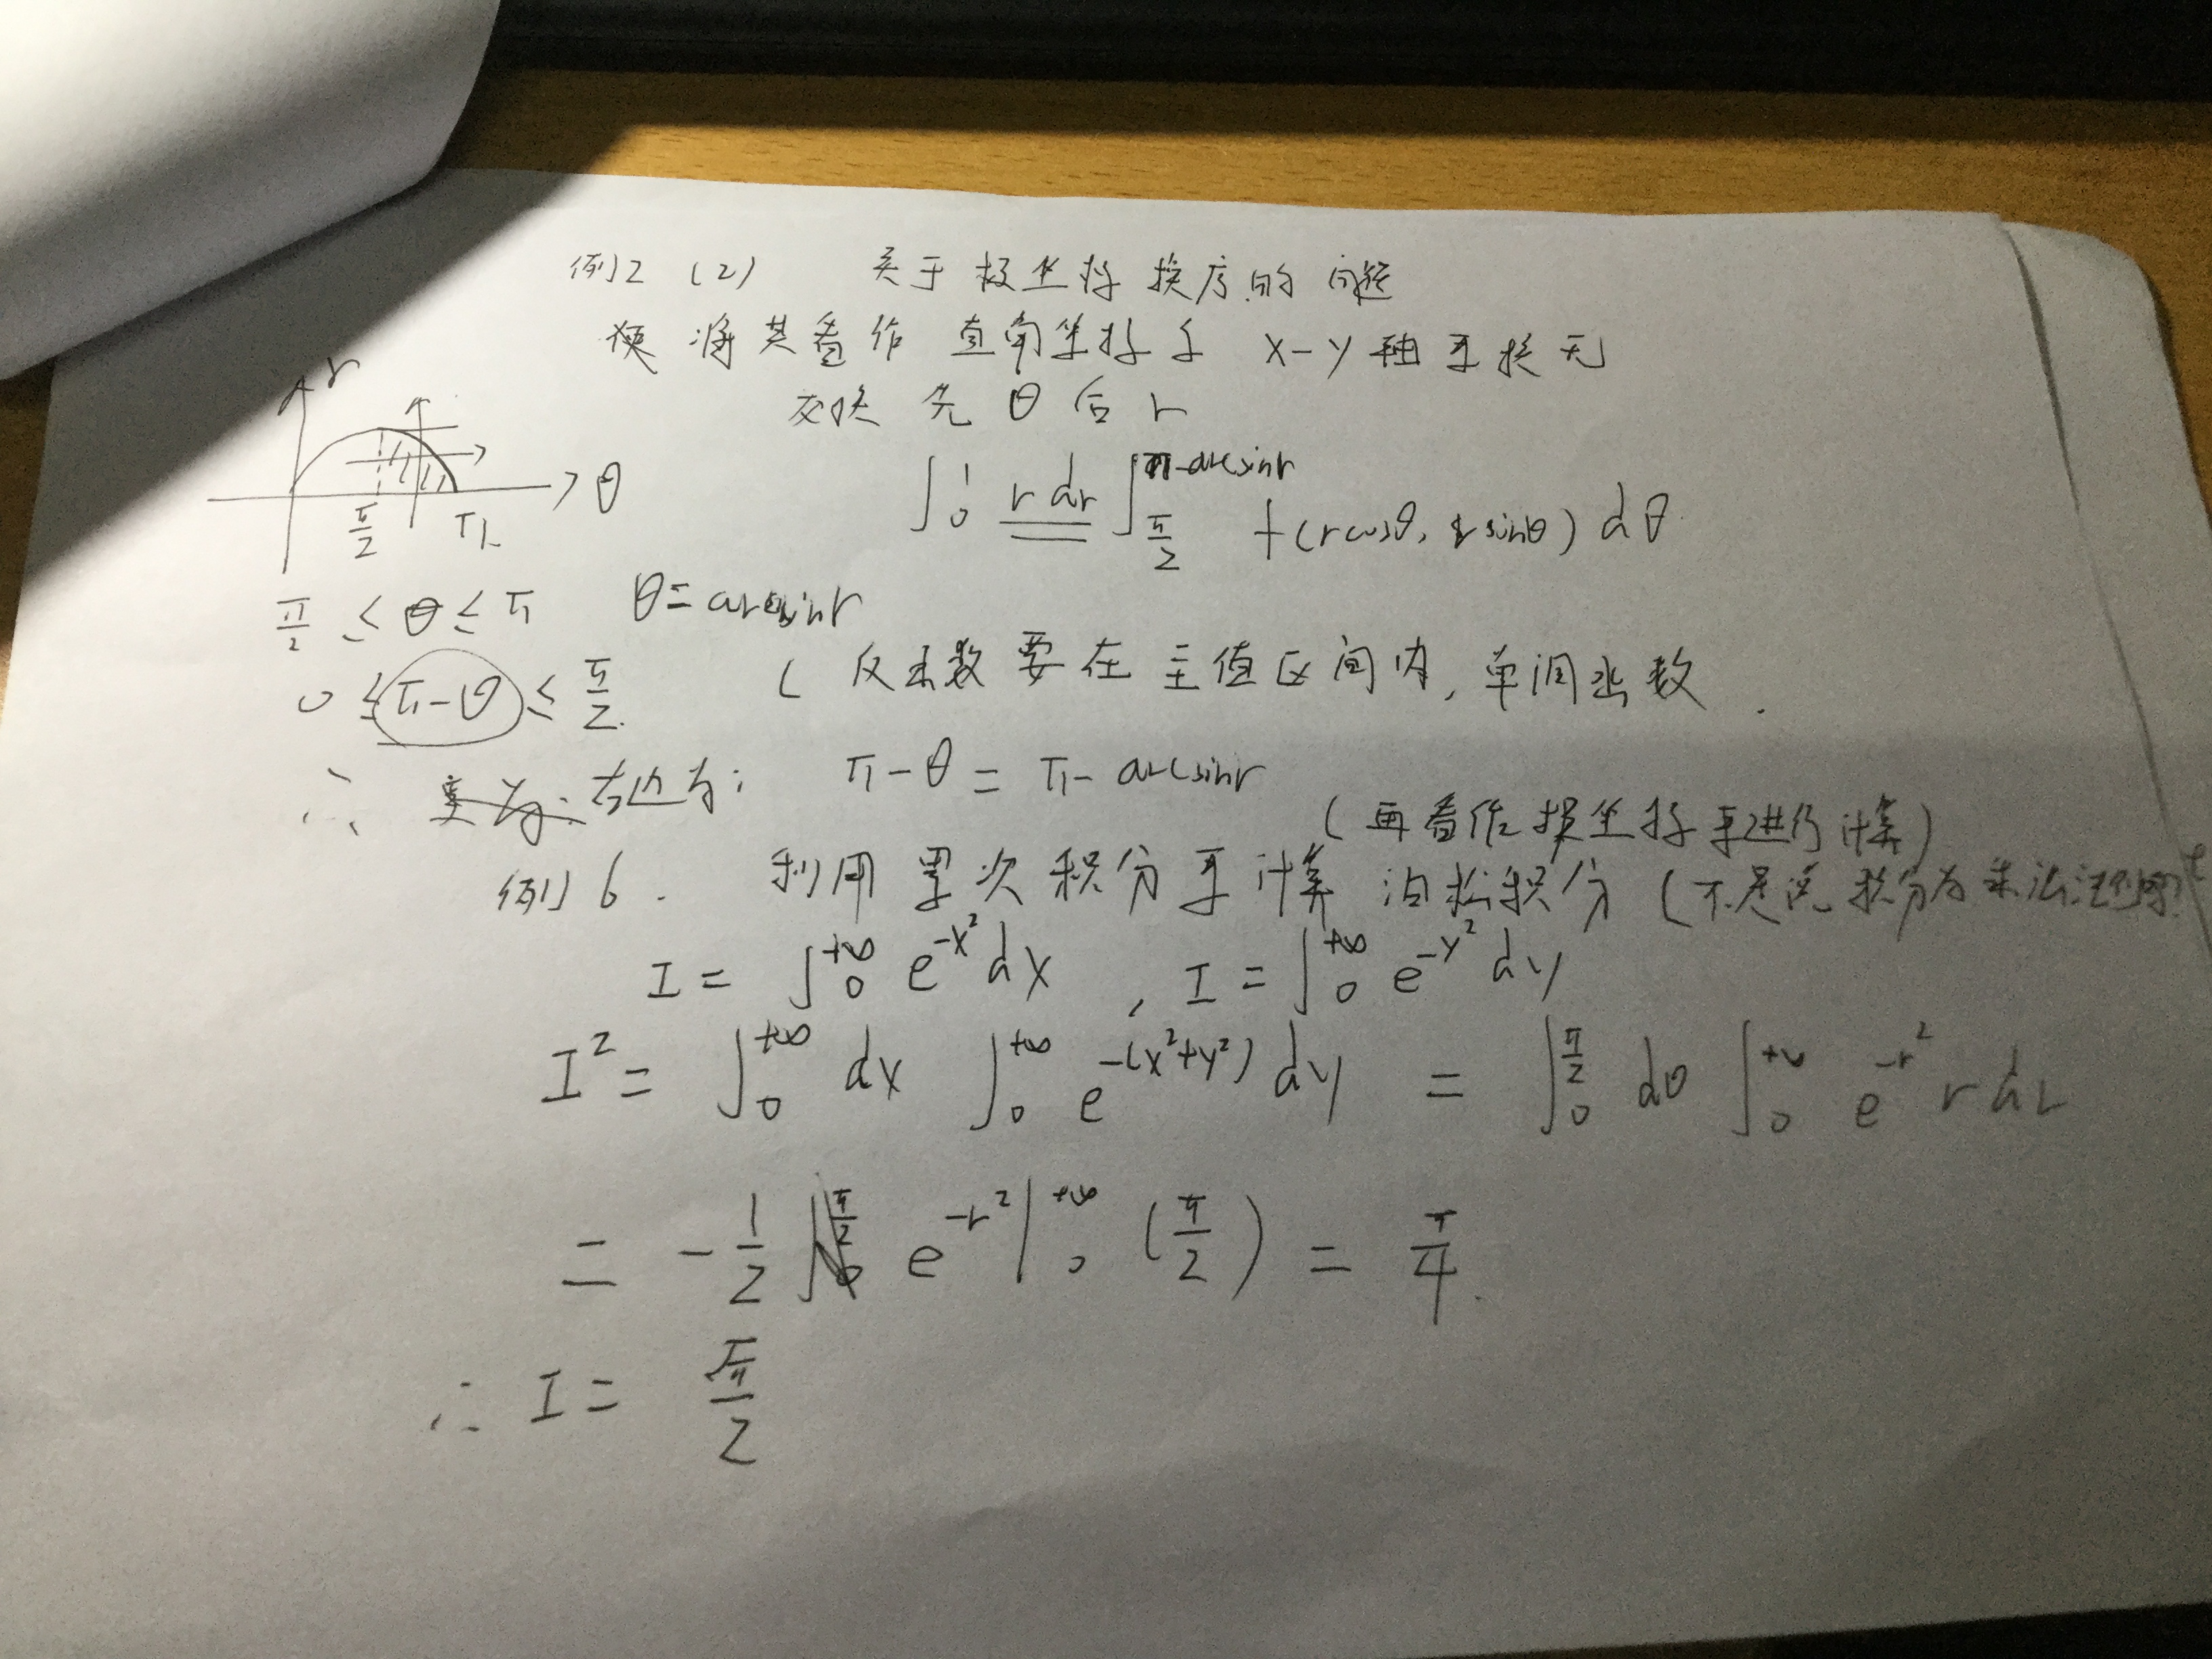 例2 (2) 关于极坐标换序的问题
将其看作直角坐标系 x-y 轴
交换 先θ后r
r
θ
π/2 π
∫₀¹ r dr ∫_{π/2}^{π-arcsinr} f(rcosθ, rsinθ) dθ
π/2 ≤ θ ≤ π θ = arcsinr
0 ≤ π-θ ≤ π/2 ( 反函数要在主值区间内, 单调函数.
∴ 右边为: π-θ = π-arcsinr
(再看作极坐标系进行计算)
例6. 利用累次积分来计算泊松积分 (不是说积分为乘法
I = ∫₀^{+∞} e^{-x²} dx , I = ∫₀^{+∞} e^{-y²} dy
I² = ∫₀^{+∞} dx ∫₀^{+∞} e^{-(x²+y²)} dy = ∫₀^{π/2} dθ ∫₀^{+∞} e^{-r²} r dr
= -1/2 e^{-r²} |₀^{+∞} (π/2) = π/4.
∴ I = √π/2